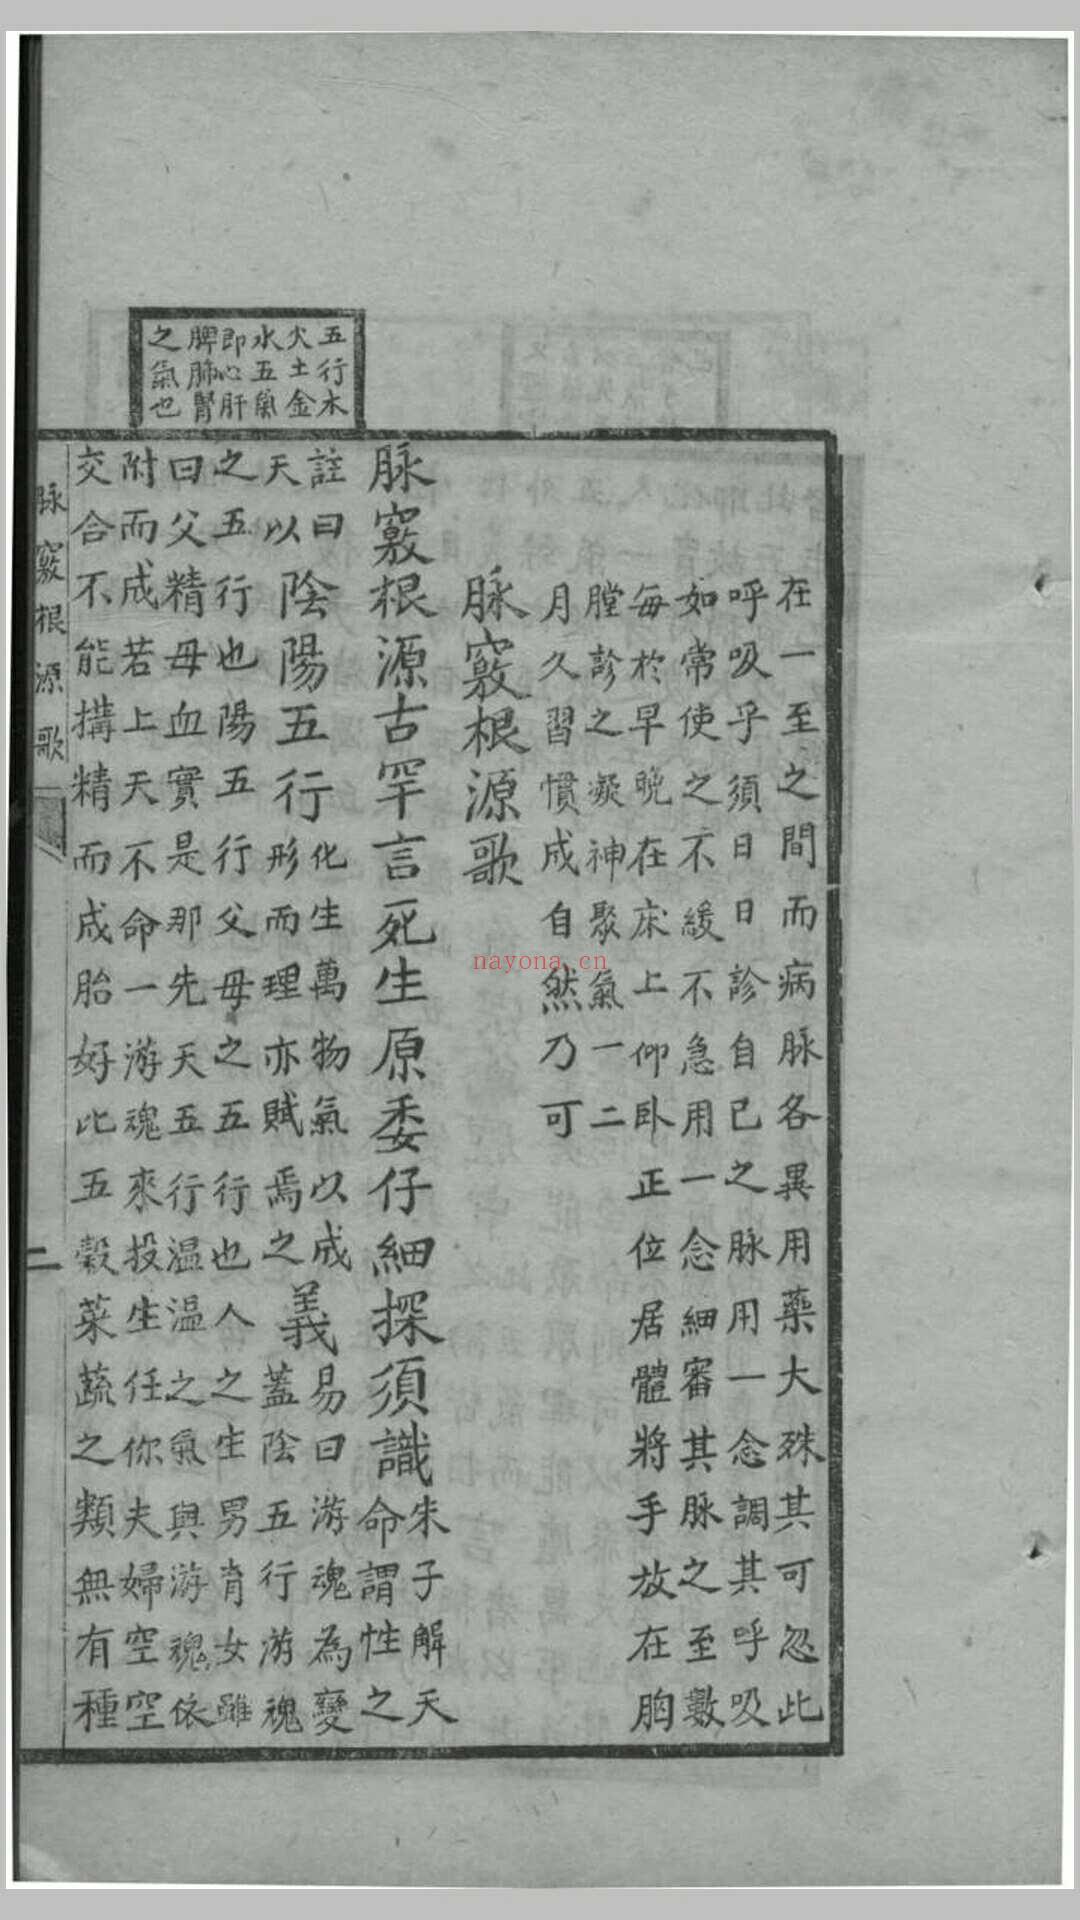 五行木
火土金
水五氣
即心肝
脾肺腎
之氣也
在一至之間而病脉各異用藥大殊其可忽此
呼吸乎須日日診自己之脉用一念調其呼吸
如常使之不緩不急用一念細審其脉之至數
每於早晚在床上仰卧正位居體將手放在胸
膛診之凝神聚氣一二
月久習慣成自然乃可
脉竅根源歌
脉竅根源古罕言死生原委仔細探須識朱子解天
命謂性之
註曰
天以陰陽五行化生萬物氣以成
形而理亦賦焉之義易曰游魂為變
蓋陰五行游魂
之五行也陽五行父母之五行也人之生男育女雖
曰父精母血實是那先天五行温温之氣與游魂依
附而成若上天不命一游魂來投生任你夫婦空空
交合不能搆精而成胎好比五穀菜蔬之類無有種
脉竅根源歌
二
nayona.cn